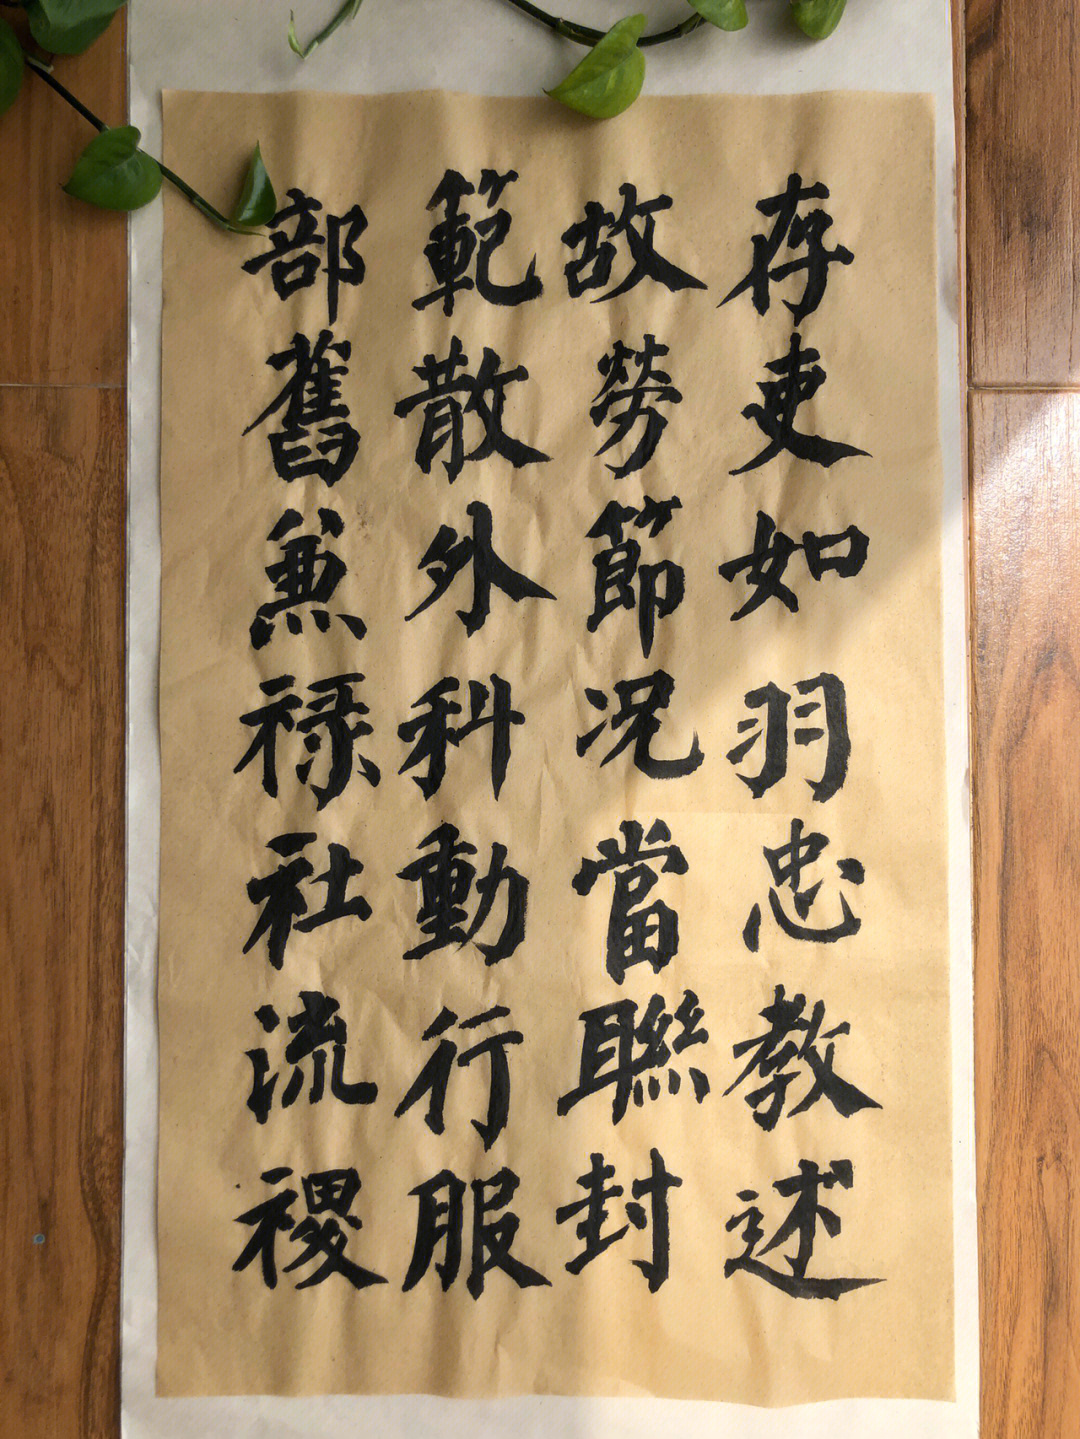 存吏如羽忠教述
故勞節况當聯封
範散外科動行服
部舊兼禄社流禝